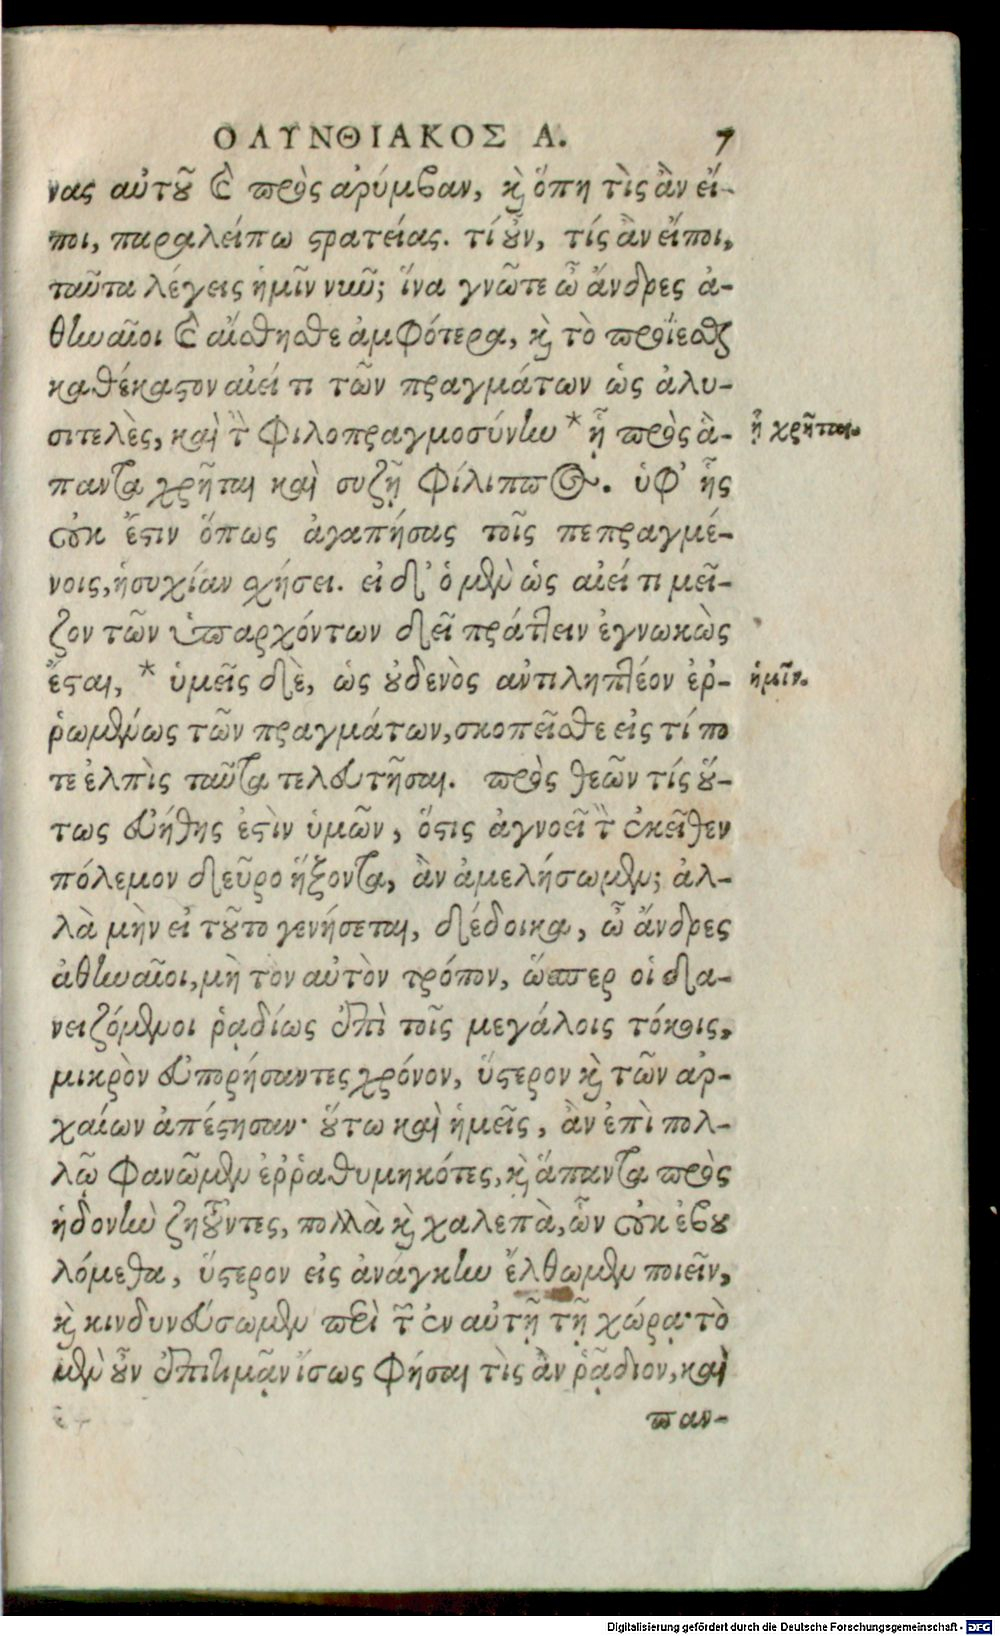 ΟΛΥΝΘΙΑΚΟΣ Α. 7
νας αὐτοῦ καὶ πρὸς αρύμβαν, καὶ ὅπη τὶς ἂν εἴ-
ποι, παραλείπω στρατείας. τί οὖν, τίς ἂν εἴποι,
ταῦτα λέγεις ἡμῖν νυῦ; ἵνα γνῶτε ὦ ἄνδρες ἀ-
θηναῖοι καὶ αἴσθησθε ἀμφότερα, καὶ τὸ προΐεσθαι
καθέκαστον αἰεί τι τῶν πραγμάτων ὡς ἀλυ-
σιτελὲς, καὶ τὴν φιλοπραγμοσύνην * ᾗ πρὸς ἅ- ᾗ χρῆται.
παντα χρῆται καὶ συζῇ Φίλιππος. ὑφ' ἧς
οὐκ ἔστιν ὅπως ἀγαπήσας τοῖς πεπραγμέ-
νοις, ἡσυχίαν σχήσει. εἰ δ' ὁ μὲν ὡς αἰεί τι μεῖ-
ζον τῶν ὑπαρχόντων δεῖ πράττειν ἐγνωκὼς
ἔσται, * ὑμεῖς δὲ, ὡς οὐδενὸς αντιληπτέον ἐρ- ἡμῖν.
ῥωμένως τῶν πραγμάτων, σκοπεῖσθε εἰς τί πο
τε ἐλπὶς ταῦτα τελευτῆσαι. πρὸς θεῶν τίς οὕ-
τως εὐήθης ἐστὶν ὑμῶν, ὅστις ἀγνοεῖ τὸν ἐκεῖθεν
πόλεμον δεῦρο ἥξοντα, ἂν ἀμελήσωμεν; ἀλ-
λὰ μὴν εἰ τοῦτο γενήσεται, δέδοικα, ὦ ἄνδρες
ἀθηναῖοι, μὴ τον αὐτὸν τρόπον, ὥσπερ οἱ δα-
νειζόμενοι ῥᾳδίως ἐπὶ τοῖς μεγάλοις τόκοις,
μικρὸν εὐπορήσαντες χρόνον, ὕστερον καὶ τῶν αρ-
χαίων ἀπέστησαν· οὕτω καὶ ἡμεῖς, ἂν ἐπὶ πολ-
λῷ φανῶμεν ἐρῥαθυμηκότες, καὶ ἅπαντα πρὸς
ἡδονὴν ζητοῦντες, πολλὰ καὶ χαλεπὰ, ὧν οὐκ ἐβου
λόμεθα, ὕστερον εἰς ἀνάγκην ἔλθωμεν ποιεῖν,
καὶ κινδυνεύσωμεν περὶ τῶν ἐν αὐτῇ τῇ χώρᾳ· τὸ
μὲν οὖν ἐπιτιμᾷν ἴσως φήσαι τὶς ἂν ῥᾴδιον, καὶ
παν-
Digitalisierung gefördert durch die Deutsche Forschungsgemeinschaft - DFG